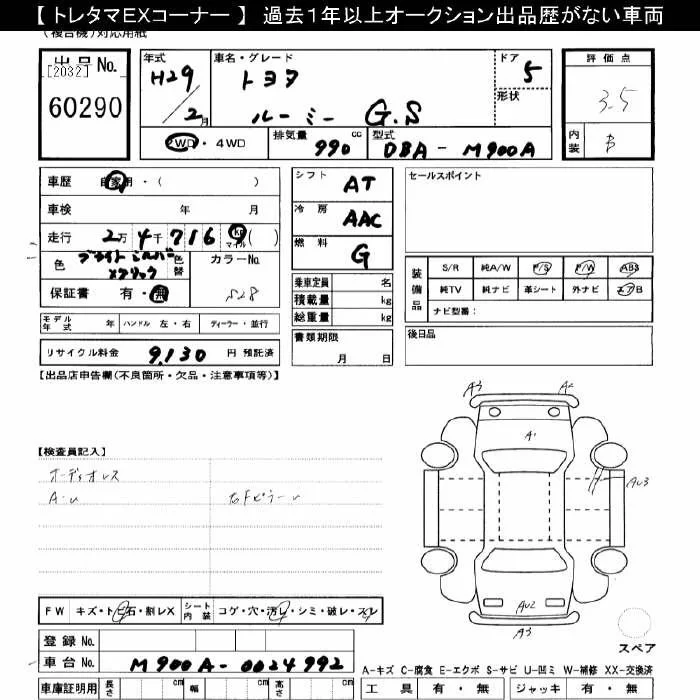 【 トレタマEXコーナー 】 過去1年以上オークション出品歴がない車両
(複合機)対応用紙
出品No.
[2032]
60290
年式 H29/2月
車名・グレード トヨタ ルーミー G.S
ドア 5
形状
評価点 3.5
内装 B
2WD・4WD
排気量 990 cc
型式 DBA-M900A
車歴 自家用・( )
車検 年 月
走行 2万4千716 km マイル ( )
色 ブライトシルバーメタリック 色替
カラーNo. S28
保証書 有・無
モデル年式 年 ハンドル 左・右 ディーラー・並行
リサイクル料金 9,130 円 預託済
シフト AT
冷房 AAC
燃料 G
乗車定員 名
積載量 kg
総重量 kg
書類期限 月 日
セールスポイント
装備品
S/R 純A/W P/S P/W ABS
純TV 純ナビ 革シート 外ナビ エアB
ナビ型番:
後日品
【出品店申告欄(不良箇所・欠品・注意事項等)】
【検査員記入】
オーディオレス
A・U 右FピラーU
A3 A2
A1
AU3
AU2
A3
スペア
FW キズ・トビ石・割レX シート内装 コゲ・穴・汚レ・シミ・破レ・スレ
登録No.
車台No. M900A-0024992
車庫証明用 長さ cm 幅 cm 高さ cm
A-キズ C-腐食 E-エクボ S-サビ U-凹ミ W-補修 XX-交換済
工具 有・無 ジャッキ 有・無